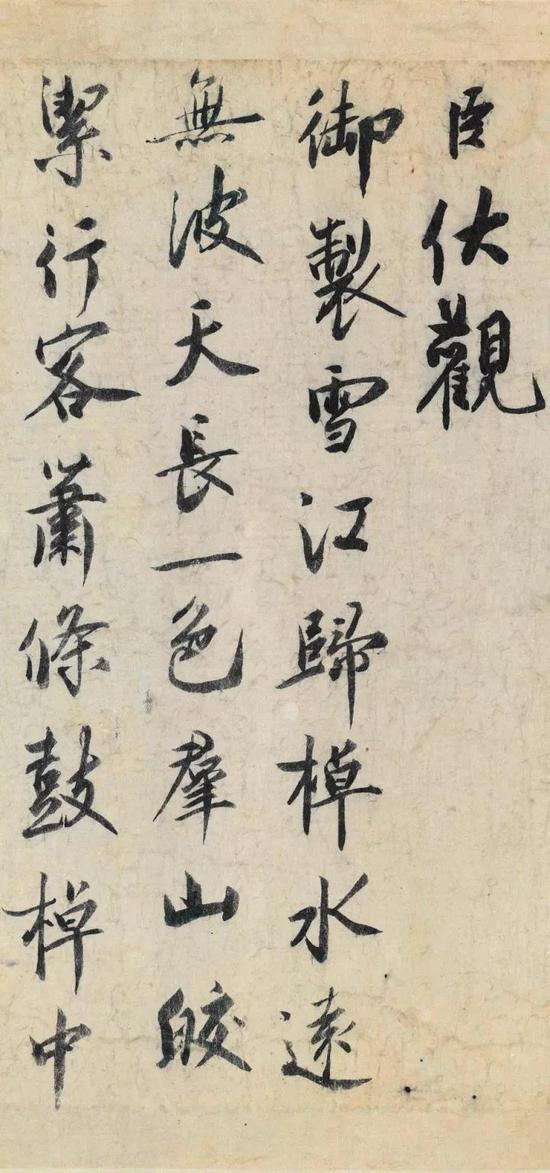 臣伏觀
御製雪江歸棹水遠
無波天長一色羣山皎
潔行客蕭條鼓棹中